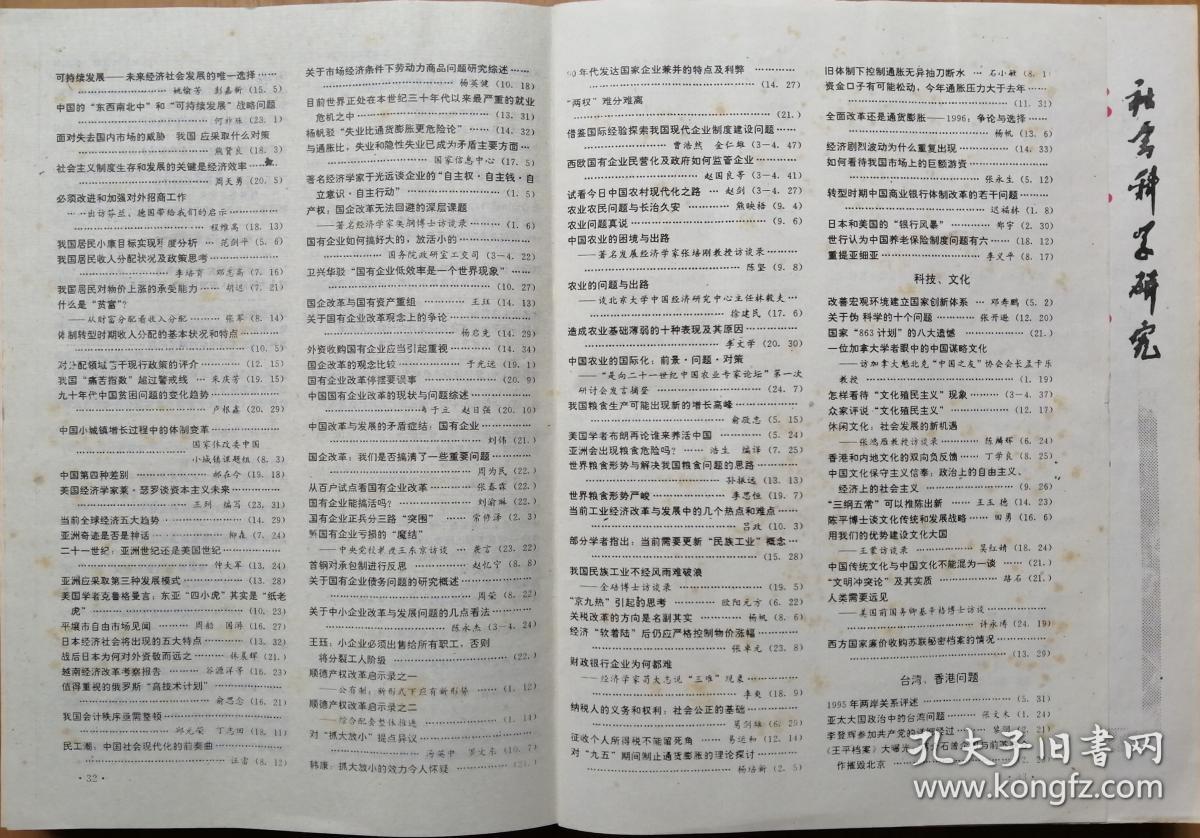 可持续发展——未来经济社会发展的唯一选择……
……姚愉芳 彭嘉新（15. 5）
中国的“东西南北中”和“可持续发展”战略问题
……（23. 1）
面对失去国内市场的威胁 我国应采取什么对策
……熊贤良（18. 3）
社会主义制度生存和发展的关键是经济效率……
……周天勇（20. 5）
必须改进和加强对外招商工作
……出访芬兰、德国带给我们的启示……
……程维高（18. 13）
我国居民小康目标实现程度分析……范剑平（5. 6）
我国居民收入分配状况及政策思考……
……李培育 邓志高（7. 16）
我国居民对物价上涨的承受能力……胡迟（7. 21）
什么是“贫富”？
——从财富分配看收入分配……张军（8. 14）
体制转型时期收入分配的基本状况和特点……
……（10. 5）
对分配领域若干现行政策的评介……（12. 15）
我国“痛苦指数”超过警戒线……朱庆芳（19. 15）
九十年代中国贫困问题的变化趋势……
……卢根鑫（20. 29）
中国小城镇增长过程中的体制变革……
……国家体改委中国
小城镇课题组（8. 3）
中国第四种差别……郝在今（19. 18）
美国经济学家莱·瑟罗谈资本主义未来……
……王列 编写（23. 31）
当前全球经济五大趋势……（14. 29）
亚洲奇迹是否是神话……柳森（7. 24）
二十一世纪：亚洲世纪还是美国世纪……
……仲大军（13. 24）
亚洲应采取第三种发展模式……（13. 28）
美国学者克鲁格曼言：东亚“四小虎”其实是“纸老
虎”……（10. 23）
平壤市自由市场见闻……周船 国游（16. 27）
日本经济社会将出现的五大特点……（13. 32）
战后日本为何对外资敬而远之……林晨辉（21.）
越南经济改革考察报告……谷源洋等（16. 23）
值得重视的俄罗斯“高技术计划”……
……俞思念（16. 21）
我国会计秩序亟需整顿……
……邱元荣 丁志田（18. 11）
民工潮：中国社会现代化的前奏曲……
……汪雷（8. 12）
·32·
关于市场经济条件下劳动力商品问题研究综述……
……杨英健（10. 18）
目前世界正处在本世纪三十年代以来最严重的就业
危机之中……（13. 31）
杨帆驳“失业比通货膨胀更危险论”……（14. 32）
与通胀比，失业和隐性失业已成为矛盾主要方面…
……国家信息中心（17. 5）
著名经济学家于光远谈企业的“自主权·自主钱·自
立意识·自主行动”……（1. 5）
产权：国企改革无法回避的深层课题
——著名经济学家吴稼祥访谈录……（1. 6）
国有企业如何搞好大的，放活小的……
……国务院政研室工交司（3—4. 22）
卫兴华驳“国有企业低效率是一个世界现象”……
……（10. 27）
国企改革与国有资产重组……王珏（14. 13）
关于国有企业改革观念上的争论……
……杨启先（14. 29）
外资收购国有企业应当引起重视……（14. 34）
国企改革的观念比较……于光远（19. 1）
国有企业改革停摆要误事……（20. 9）
中国国有企业改革的现状与问题综述……
……于立 赵日强（20. 10）
中国改革与发展的矛盾症结：国有企业……
……刘伟（21.）
国企改革：我们是否搞清了一些重要问题……
……周为民（22.）
从百户试点看国有企业改革……张春霖（22.）
国有企业能搞活吗？……刘渝琳（22.）
国有企业正兵分三路“突围”……常修泽（2. 3）
国有企业亏损的“魔结”
——中央党校教授王东京访谈……袭言（23. 22）
首钢对承包制进行反思……赵忆宁（8. 8）
关于国有企业债务问题的研究概述……
……周荣（8. 22）
关于中小企业改革与发展问题的几点看法……
……陈永杰（3—4. 24）
王珏：小企业必须出售给所有职工，否则
将分裂工人阶级……（22.）
顺德产权改革启示录之一
——公有制：新形式下应有新形势……（1. 12）
顺德产权改革启示录之二
——综合配套整体推进……（1. 14）
对“抓大放小”提点异议……
……汤英中 罗文东（10. 7）
韩康：抓大放小的效力令人怀疑……（21.）
90年代发达国家企业兼并的特点及利弊……
……（14. 27）
“两权”难分难离……
……（21.）
借鉴国际经验探索我国现代企业制度建设问题……
……曹浩然 金仁雄（3—4. 47）
西欧国有企业民营化及政府如何监管企业……
……赵国良等（3—4. 41）
试看今日中国农村现代化之路……赵剑（3—4. 27）
农业农民问题与长治久安……熊映梧（9. 4）
农业问题真说……（9. 6）
中国农业的困境与出路
——著名发展经济学家张培刚教授访谈录……
……陈坚（9. 8）
农业的问题与出路
——谈北京大学中国经济研究中心主任林毅夫…
……徐建民（17. 6）
造成农业基础薄弱的十种表现及其原因……
……李文学（20. 30）
中国农业的国际化：前景·问题·对策
——“走向二十一世纪中国农业专家论坛”第一次
研讨会发言摘登……（24. 7）
我国粮食生产可能出现新的增长高峰……
……俞敬忠（5. 15）
美国学者布朗再论谁来养活中国……（5. 24）
亚洲会出现粮食危险吗？……浩生 编译（7. 25）
世界粮食形势与解决我国粮食问题的思路……
……孙振远（13. 13）
世界粮食形势严峻……李思恒（19. 7）
当前工业经济改革与发展中的几个热点和难点……
……吕政（10. 3）
部分学者指出：当前需要更新“民族工业”概念…
……（15. 28）
我国民族工业不经风雨难破浪
——金碚博士访谈录……（19. 5）
“京九热”引起的思考……欧阳元方（6. 22）
关税改革的方向是名副其实……杨帆（8. 6）
经济“软着陆”后仍应严格控制物价涨幅……
……张卓元（23. 8）
财政银行企业为何都难
——经济学家苟大志说“三难”现象……
……李爽（18. 9）
纳税人的义务和权利：社会公正的基础……
……葛剑雄（6. 29）
征收个人所得税不能留死角……易运和（12. 14）
对“九五”期间制止通货膨胀的理论探讨……
……杨培新（2. 5）
旧体制下控制通胀无异抽刀断水……石小敏（8. 1）
资金口子有可能松动，今年通胀压力大于去年……
……（11. 31）
全面改革还是通货膨胀——1996：争论与选择……
……杨帆（13. 6）
经济剧烈波动为什么重复出现……（14. 33）
如何看待我国市场上的巨额游资……
……张永生（5. 12）
转型时期中国商业银行体制改革的若干问题……
……迟福林（1. 8）
日本和美国的“银行风暴”……郑宇（2. 30）
世行认为中国养老保险制度问题有六……（18. 12）
重提亚细亚……李义平（8. 17）
科技、文化
改善宏观环境建立国家创新体系……邓寿鹏（5. 2）
关于伪科学的十个问题……张开逊（12. 20）
国家“863计划”的八大遗憾……（21.）
一位加拿大学者眼中的中国谋略文化
——访加拿大魁北克“中国之友”协会会长孟卡乐
教授……（1. 19）
怎样看待“文化殖民主义”现象……（3—4. 37）
众家评说“文化殖民主义”……（12. 17）
休闲文化：社会发展的新机遇
——张鸿雁教授访谈录……陈麟辉（6. 24）
香港和内地文化的双向负反馈……丁学良（8. 25）
中国文化保守主义信奉：政治上的自由主义、
经济上的社会主义……（9. 26）
“三纲五常”可以推陈出新……王玉德（14. 23）
陈平博士谈文化传统和发展战略……田勇（16. 6）
用我们的优势建设文化大国
——王蒙访谈录……吴红婧（18. 24）
中国传统文化与中国文化不能混为一谈……（21.）
“文明冲突论”及其实质……路石（21.）
人类需要远见
——美国前国务卿基辛格博士访谈……
……许永涛（24. 19）
西方国家廉价收购苏联秘密档案的情况……
……（13. 29）
台湾、香港问题
1995年两岸关系评述……（5. 31）
亚太大国政治中的台湾问题……张文木（1. 24）
李登辉参加共产党的详细经过……（2. 21）
《王平档案》大曝光……
作摧毁北京……（2. 25）
社会科学研究
孔夫子旧书网
www.kongfz.com